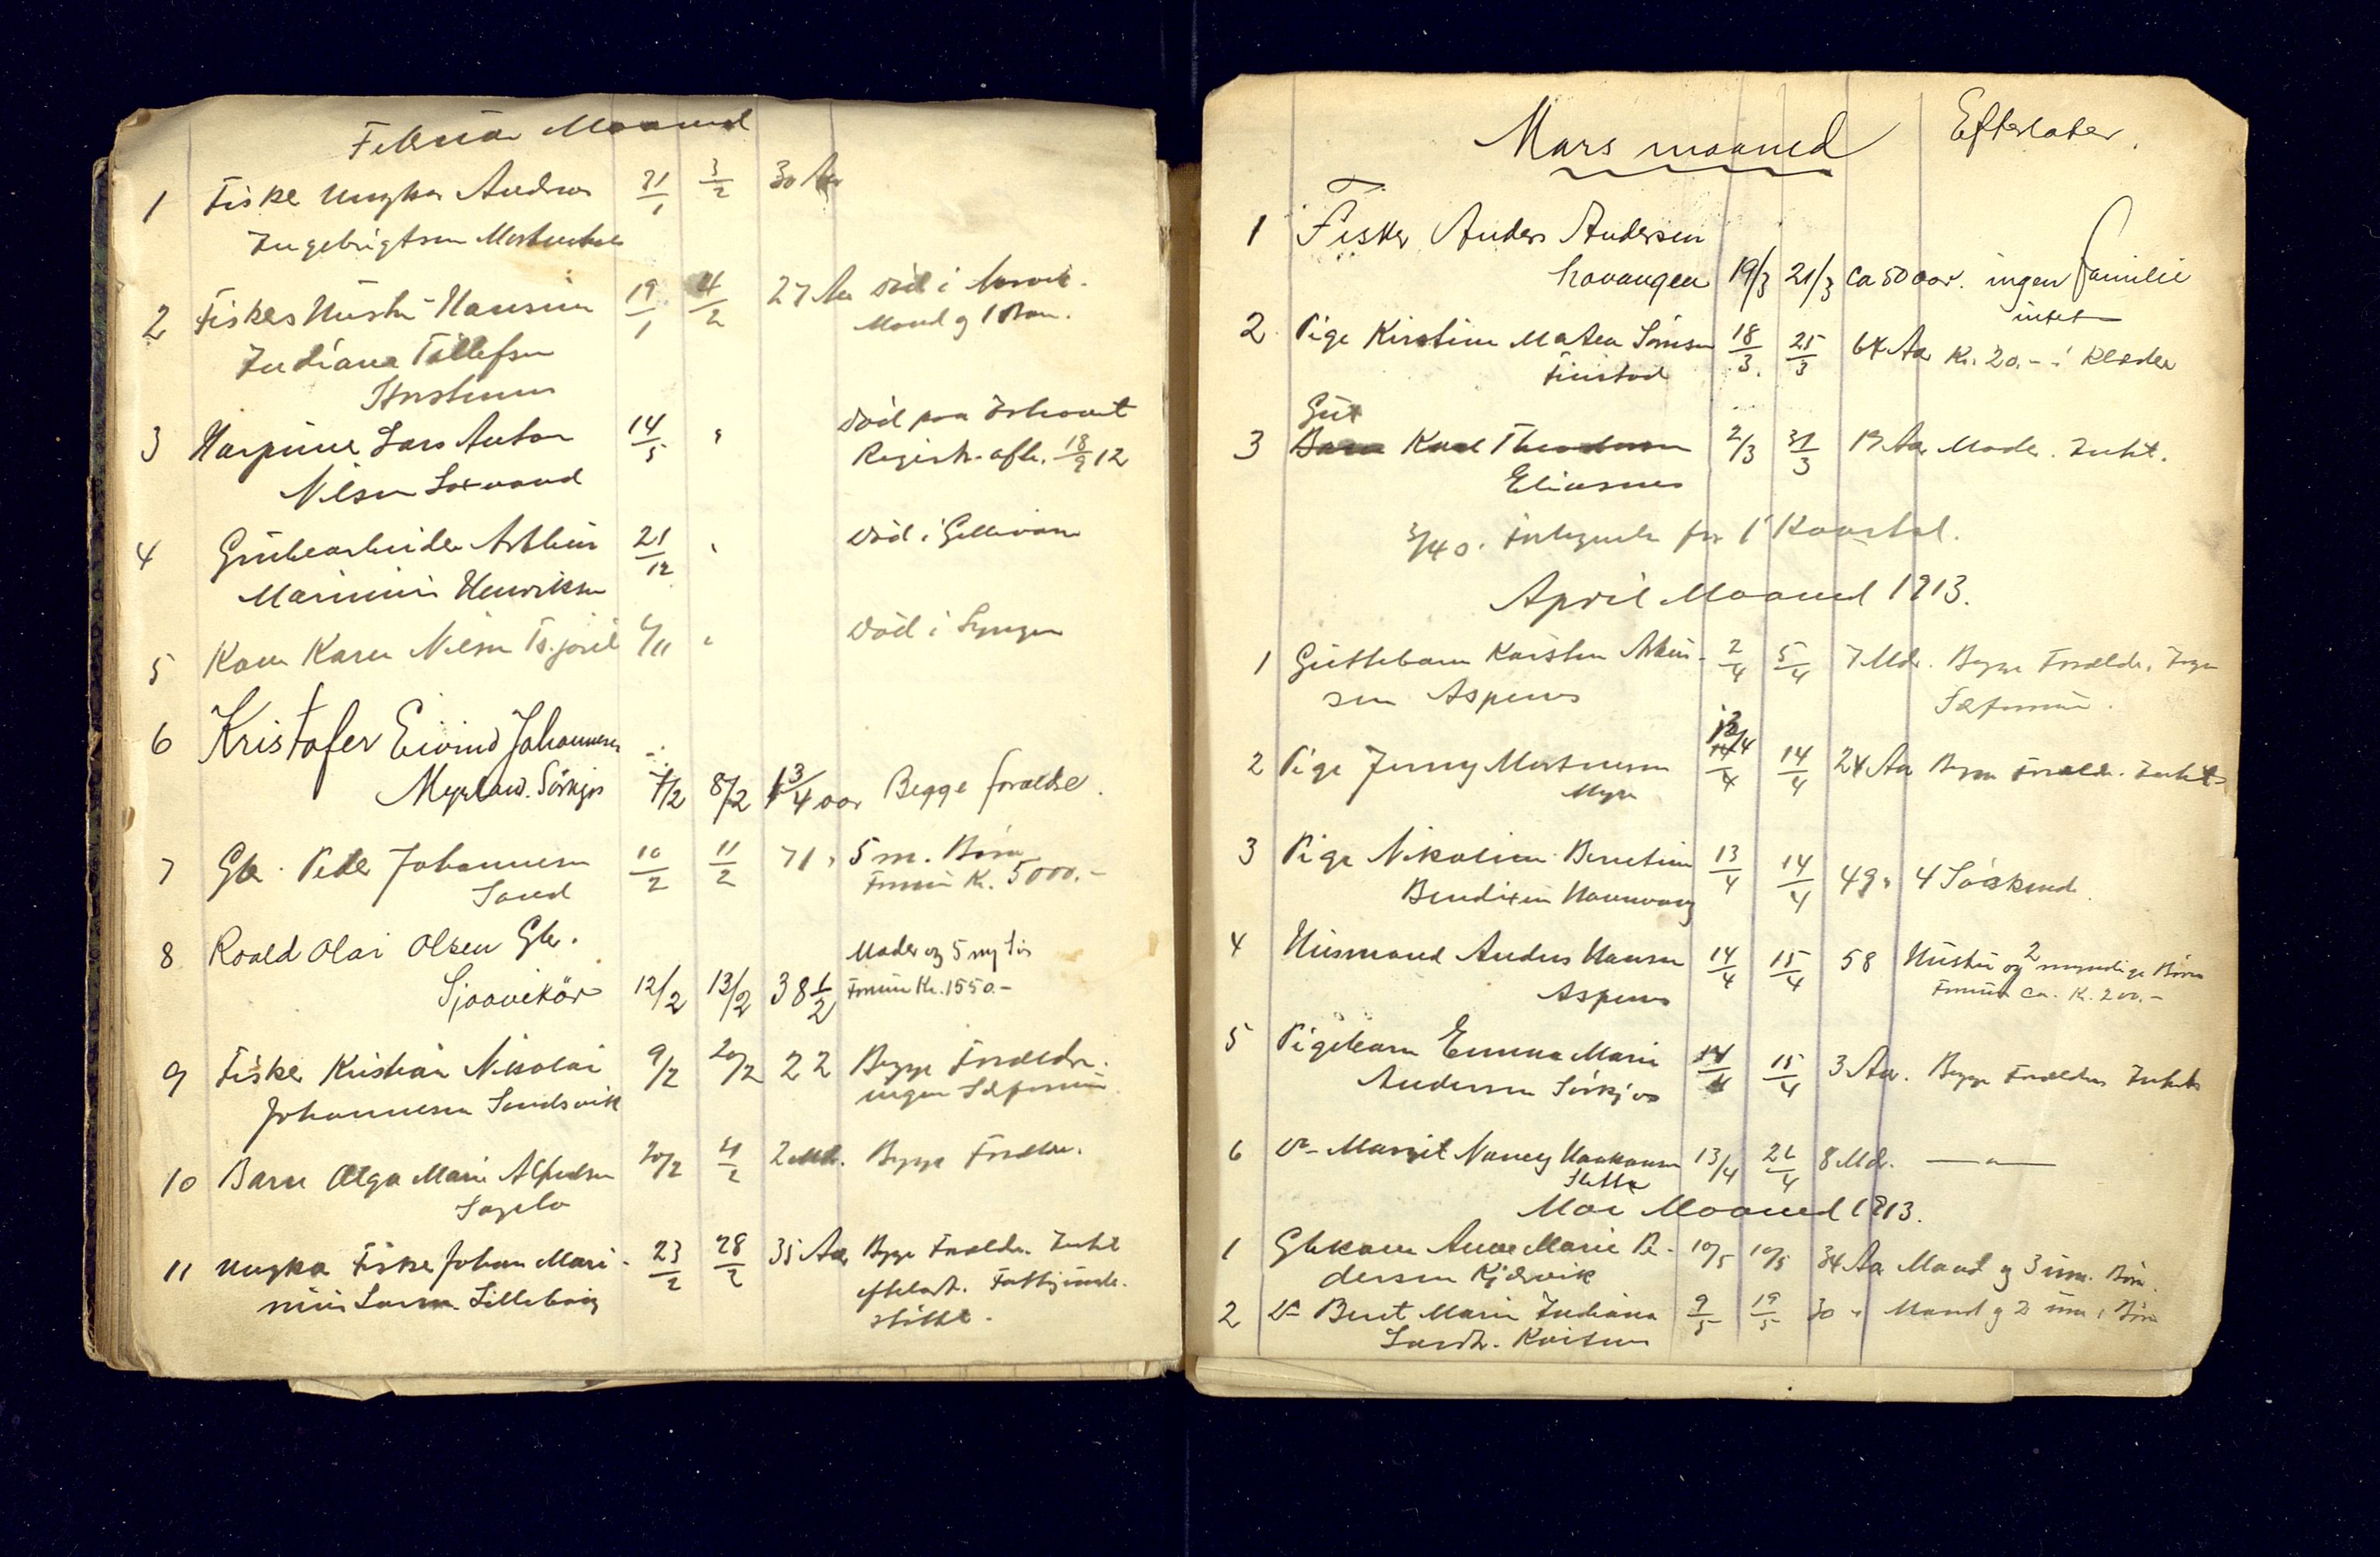 Februar Maaned
1 Fisker Ungkar Andreas 31/1 3/2 30 Aar
Ingebrigtsen
2 Fiskers Hustru Hansine 19/1 4/2 27 Aar død i Narvik.
Indiana Tollefsen Mand og 1 Barn.
3 Harpuner Lars Anton 14/5 " død paa Ishavet
Nilsen Laxvand Registr. afh. 18/9 12
4 Grubearbeider Arthur 21/12 " død i Gellivare
Marinius Henriksen
5 Kone Karen Nilsen 6/11 " død i Lyngen
6 Kristofer Eivind Johannesen
Myrland. Sörkjos 7/2 8/2 1 3/4 aar Begge forældre.
7 Gbr. Peder Johannesen 10/2 11/2 71 " 5 m. Børn
Sand Formue Kr. 5000.-
8 Roald Olai Olsen Gbr. Moder og 5 myn
Sjaavikör 12/2 13/2 38 1/2 Formue Kr. 1550.-
9 Fisker Kristian Nikolai 9/2 20/2 22 Begge Forældre.
Johannesen Sandsvik ingen Særformue
10 Barn Olga Marie Alfredsen 20/2 2 Mdr. Begge Forældre.
11 Ungkar Fisker Johan Mari- 23/2 28/2 35 Aar Begge Forældre. Intet
nius Larsen. Lilleberg efterladt. Fattigunder-
støttet.
Mars maaned Efterlater.
1 Fisker Anders Andersen
Lavangen 19/3 21/3 ca 50 aar. ingen familie
intet
2 Pige Kirstine Matea Simonsen 18/3 25/3 64 Aar Kr. 20.- i Klæder
Finstad
Gut
3 Barn Karl Theodorsen 2/3 31/3 19 Aar Moder. Intet.
Eliasnes
3/4 0. for 1' Kvartal.
April Maaned 1913.
1 Guttebarn Karsten 2/4 5/4 7 Mdr. Begge Forældre, Ingen
sen Aspenes Særformue.
13/4
2 Pige Jenny Mortensen 14/4 14/4 24 Aar Begge Forældre. Intet
Myre
3 Pige Nikoline Berntine 13/4 14/4 49 " 4 Söskend.
Bendixen Havnvaag
4 Husmand Anders Hansen 14/4 15/4 58 Hustru og 2 myndige Børn
Aspenes Formue ca. Kr. 200.-
5 Pigebarn Emma Marie 14/4 15/4 3 Aar. Begge Forældre Intet
Andersen Sörkjos
6 do- Margit Nancy Haakonsen 13/4 26/4 8 Md. — " —
Slette
Mai Maaned 1913.
1 Gbkone Anne Marie Pe- 10/5 10/5 34 Aar Mand og 3 um. Børn
dersen Kjærvik
2 do- Beret Marie Indiana 9/5 19/5 30 " Mand og 2 um. Børn